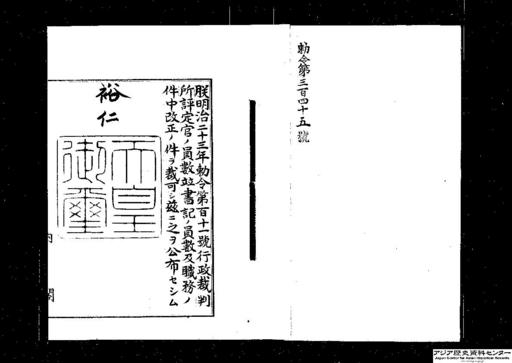 勅令第三百四十五號
朕明治二十三年勅令第百十一號行政裁判
所評定官ノ員數竝書記ノ員數及職務ノ
件中改正ノ件ヲ裁可シ茲ニ之ヲ公布セシム
裕仁
天皇
御璽
内閣
アジア歴史資料センター
Japan Center for Asian Historical Records